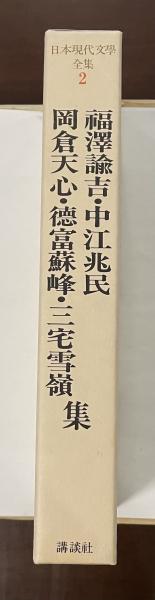 日本現代文學
全集
2
福澤諭吉・中江兆民
岡倉天心・德富蘇峰・三宅雪嶺
集
講談社